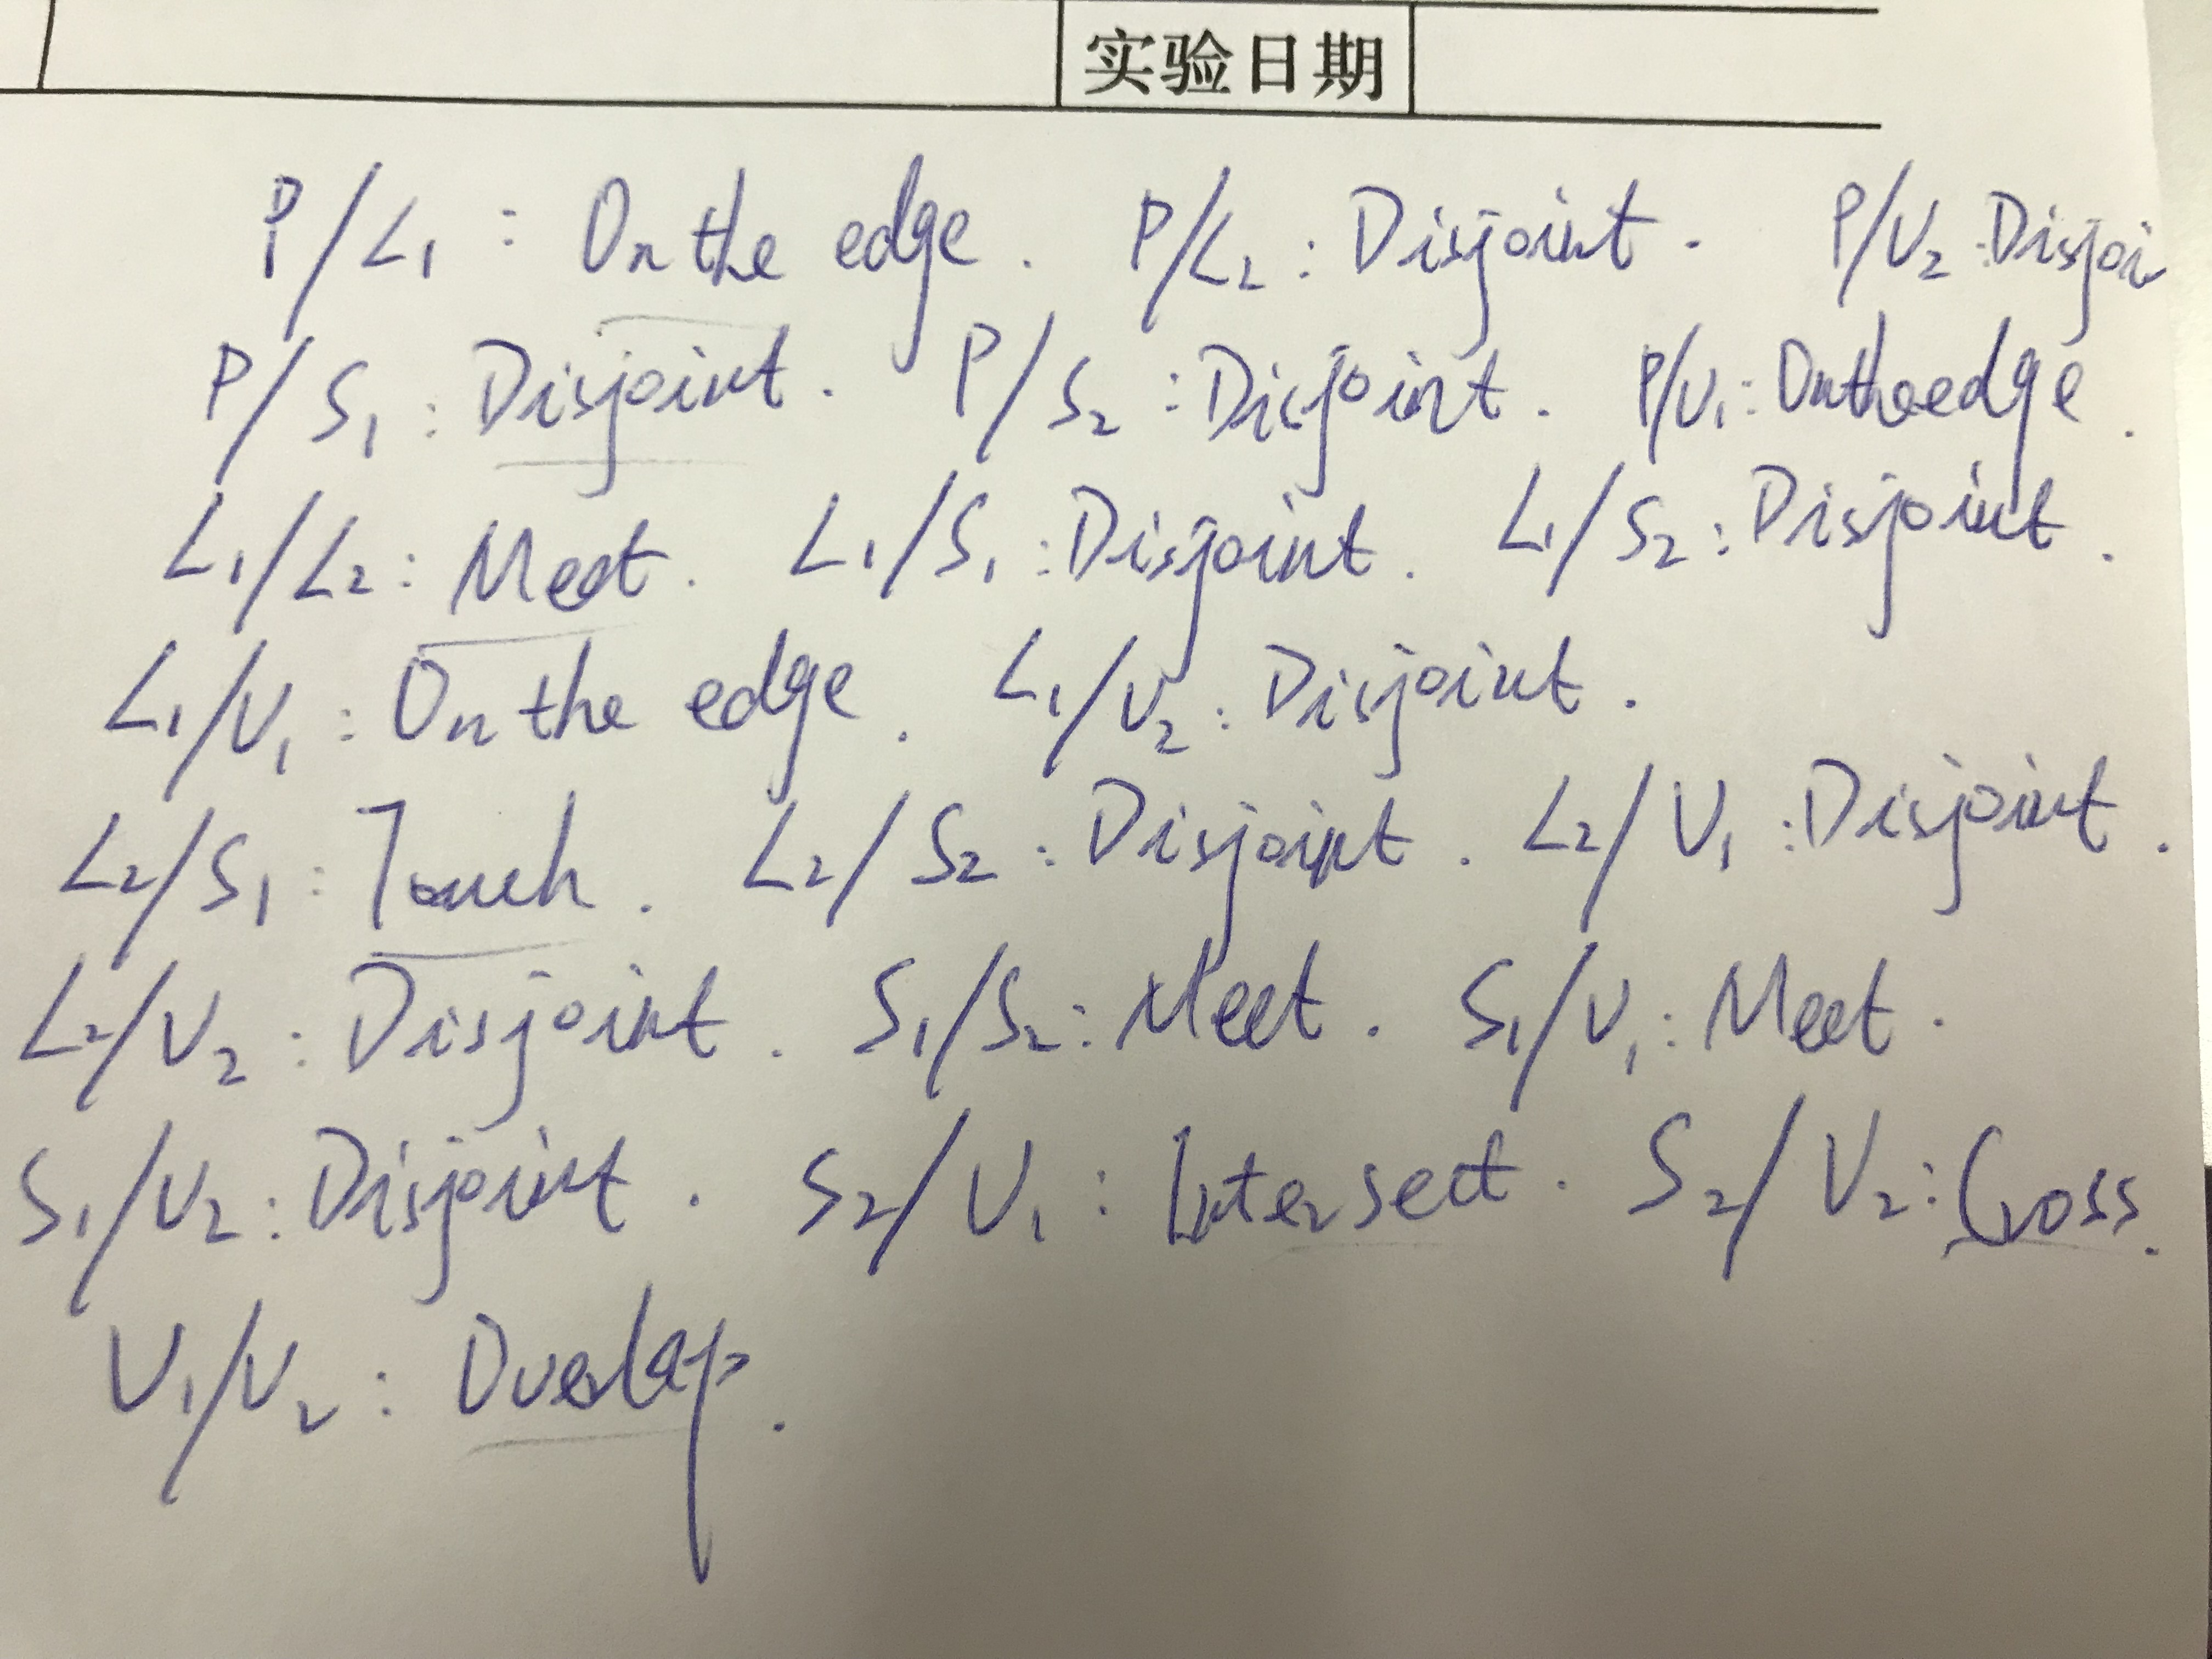 实验日期
P/L₁ : On the edge. P/L₂ : Disjoint. P/V₂ : Disjoi
P/S₁ : Disjoint. P/S₂ : Disjoint. P/V₁ : On the edge.
L₁/L₂ : Meet. L₁/S₁ : Disjoint. L₁/S₂ : Disjoint.
L₁/V₁ : On the edge. L₁/V₂ : Disjoint.
L₂/S₁ : Touch. L₂/S₂ : Disjoint. L₂/V₁ : Disjoint.
L₂/V₂ : Disjoint. S₁/S₂ : Meet. S₁/V₁ : Meet.
S₁/V₂ : Disjoint. S₂/V₁ : Intersect. S₂/V₂ : Cross.
V₁/V₂ : Overlap.